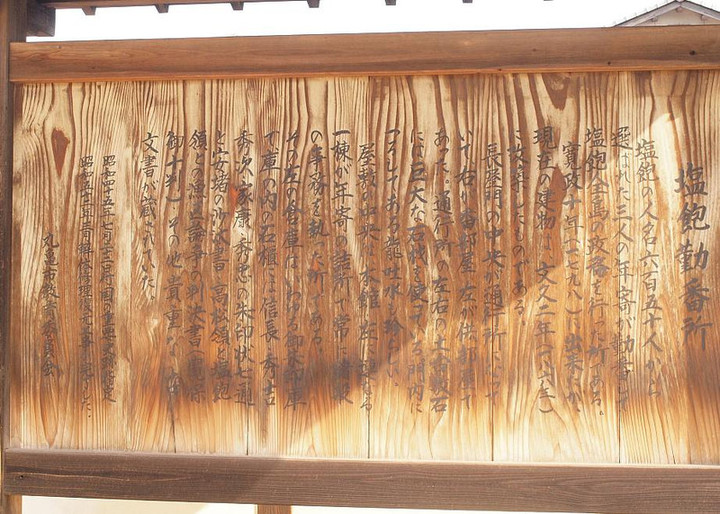 塩飽勤番所
塩飽の人名六百五十人から
選ばれた三人の年寄が勤番して
塩飽全島の政務を行った所である。
寛政十年(一七九八)に出来たが、
現在の建物は文久二年(一八六二)
に改築したものである。
長屋門の中央が通行所になって
いて右が番部屋、左が供部屋で
あった。通行所の左右の土台敷石
には巨大な石材を使ってあり門内に
つるしてある龍吐水も珍しい。
屋敷の中央に本館、左に
一棟が年寄の詰所で常に
の事務を執った所である。
その左の倉庫はいわゆる御朱印庫
で庫の内の石櫃には信長、秀吉
秀次、家康、秀忠の朱印状七通
と安堵の御水書、高松領と塩飽
領との漁場論争の判決書(
御十判)その他貴重な
文書が蔵されていた。
昭和四五年 月 日国の重要文 指定
昭和五二年三月 修理復元工事 完了した。
丸亀市教育委員会